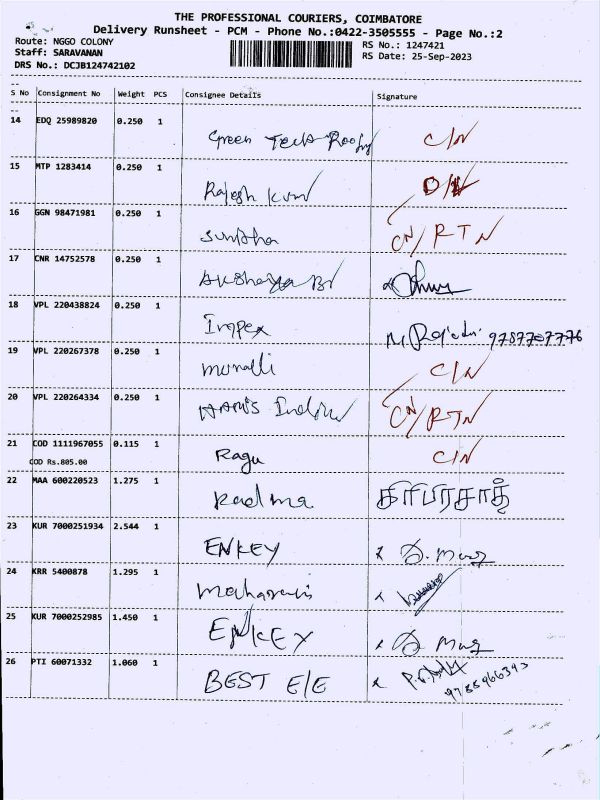 THE PROFESSIONAL COURIERS, COIMBATORE
Delivery Runsheet - PCM - Phone No.:0422-3505555 - Page No.:2
Route: NGGO COLONY RS No.: 1247421
Staff: SARAVANAN RS Date: 25-Sep-2023
DRS No.: DCJB124742102
S No Consignment No Weight PCS Consignee Details Signature
14 EDQ 25989820 0.250 1
Green Tech Roofing C/N
15 MTP 1283414 0.250 1
Rajesh Kum D/N
16 GGN 98471981 0.250 1
Sunitha CN/RTN
17 CNR 14752578 0.250 1
Akshaya Br
18 VPL 220438824 0.250 1
Impex 9787707776
19 VPL 220267378 0.250 1
murali C/N
20 VPL 220264334 0.250 1
CN/RTN
21 COD 1111967055 0.115 1
COD Rs.805.00 Ragu C/N
22 MAA 600220523 1.275 1
23 KUR 7000251934 2.544 1
ENKEY x
24 KRR 5400878 1.295 1
x
25 KUR 7000252985 1.450 1
ENKEY x
26 PTI 60071332 1.060 1
BEST E/E x
9755966393